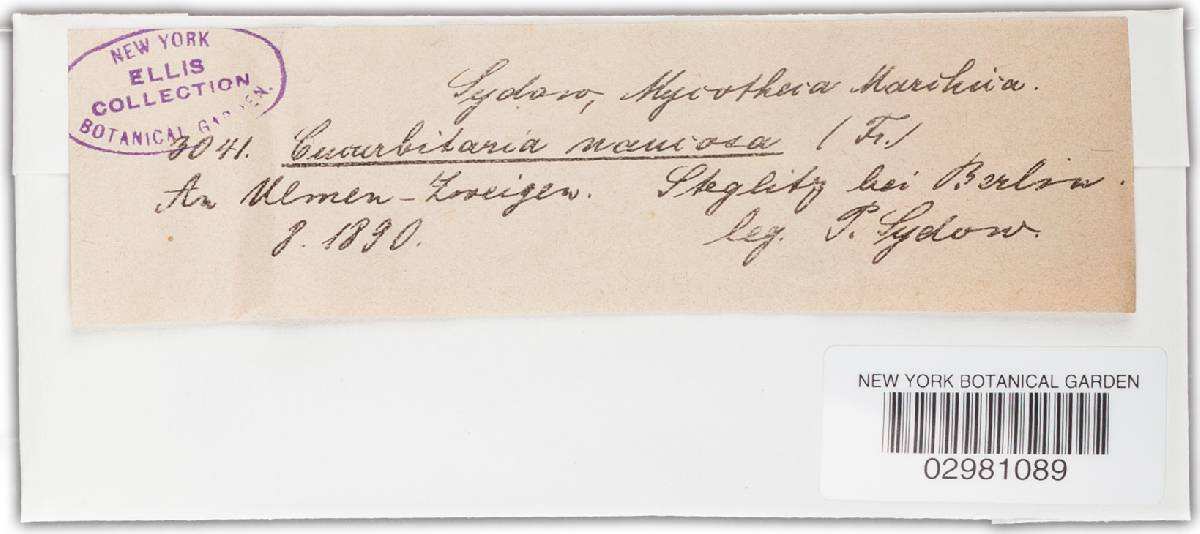 NEW YORK
ELLIS
COLLECTION
BOTANICAL GARDEN.
Sydow, Mycotheca Marchica.
3041. Cucurbitaria naucosa (Fr.)
An Ulmen-Zweigen. Steglitz bei Berlin.
8. 1890. leg. P. Sydow.
NEW YORK BOTANICAL GARDEN
02981089